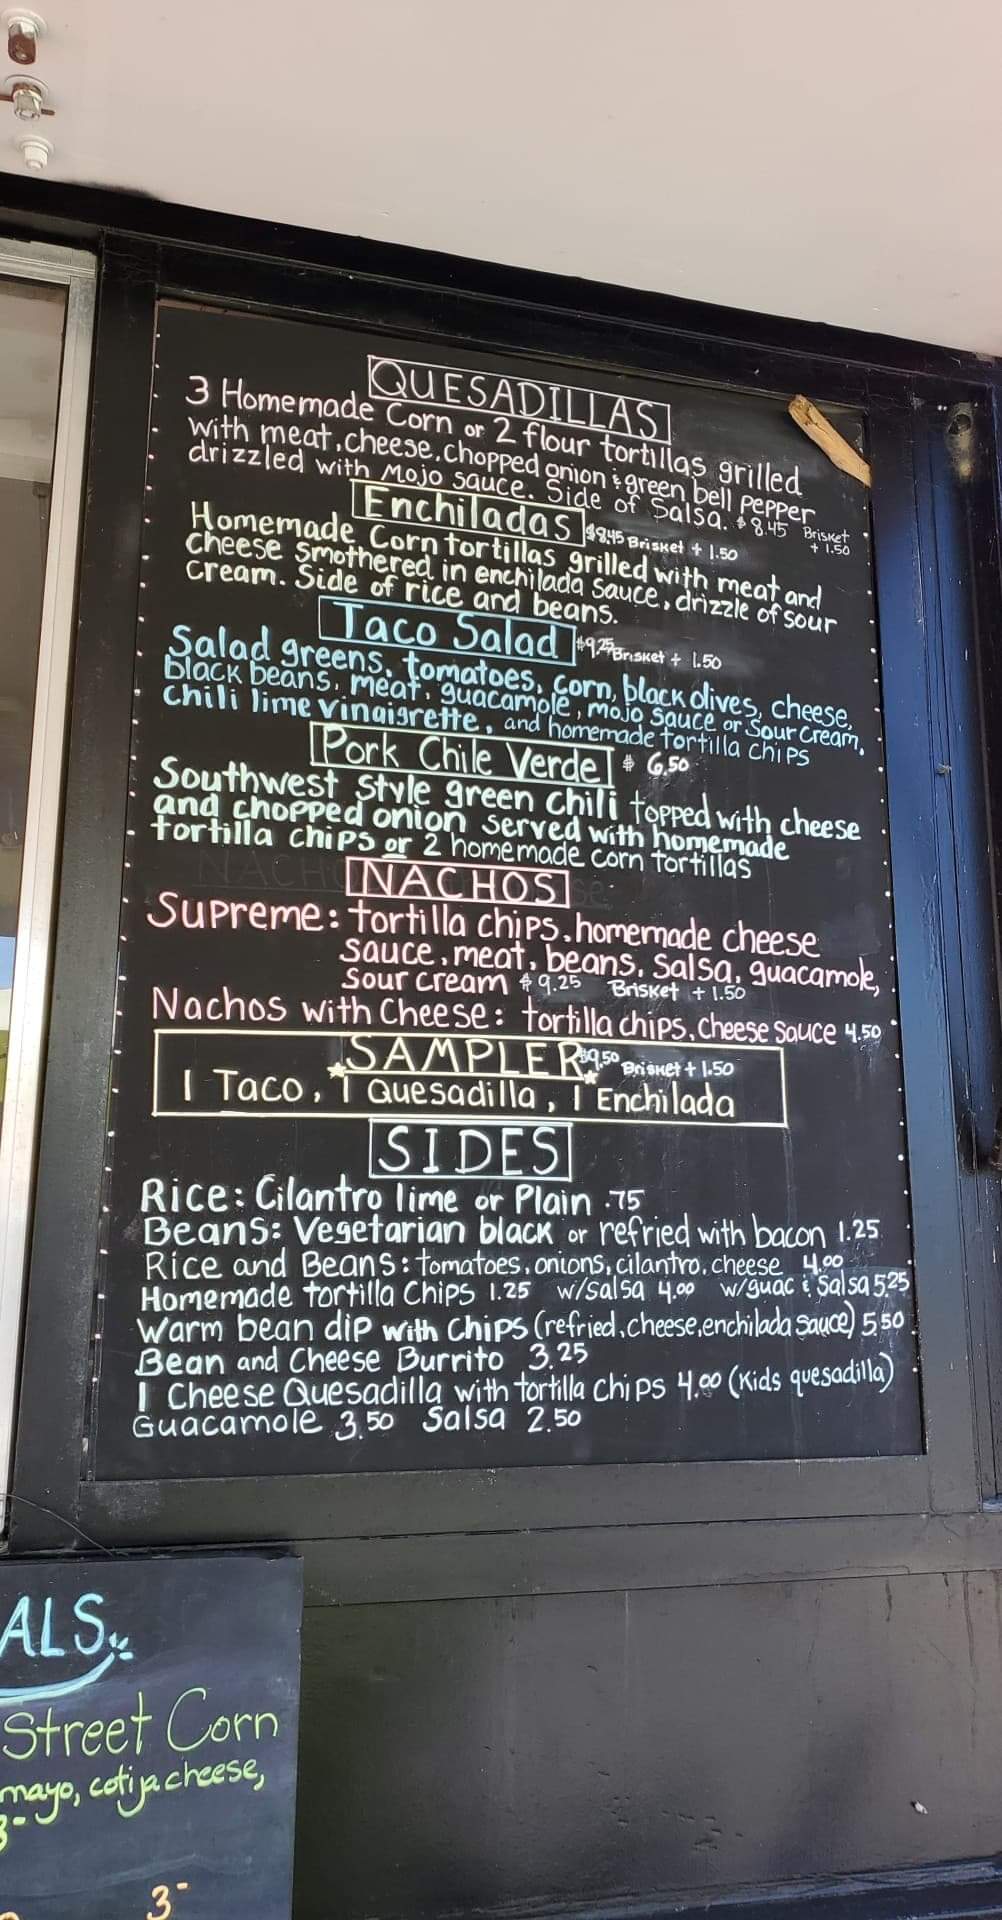 QUESADILLAS
3 Homemade Corn or 2 flour tortillas grilled
with meat, cheese, chopped onion & green bell pepper
drizzled with Mojo sauce. Side of Salsa. $8.45 Brisket + 1.50
Enchiladas $8.45 Brisket + 1.50
Homemade Corn tortillas grilled with meat and
cheese smothered in enchilada sauce, drizzle of sour
cream. Side of rice and beans.
Taco Salad $9.25 Brisket + 1.50
Salad greens, tomatoes, corn, black olives, cheese,
black beans, meat, guacamole, mojo sauce or sour cream,
chili lime vinaigrette, and homemade tortilla chips
Pork Chile Verde $6.50
Southwest Style green chili topped with cheese
and chopped onion served with homemade
tortilla chips or 2 homemade corn tortillas
NACHOS
Supreme: tortilla chips, homemade cheese
sauce, meat, beans, salsa, guacamole,
sour cream $9.25 Brisket + 1.50
Nachos with Cheese: tortilla chips, cheese sauce 4.50
SAMPLER $9.50 Brisket + 1.50
1 Taco, 1 Quesadilla, 1 Enchilada
SIDES
Rice: Cilantro lime or Plain .75
Beans: Vegetarian black or refried with bacon 1.25
Rice and Beans: tomatoes, onions, cilantro, cheese 4.00
Homemade tortilla Chips 1.25 w/salsa 4.00 w/guac & Salsa 5.25
Warm bean dip with Chips (refried, cheese, enchilada sauce) 5.50
Bean and Cheese Burrito 3.25
1 Cheese Quesadilla with tortilla chips 4.00 (Kids quesadilla)
Guacamole 3.50 Salsa 2.50
ALS
Street Corn
mayo, cotija cheese,
3-
3-